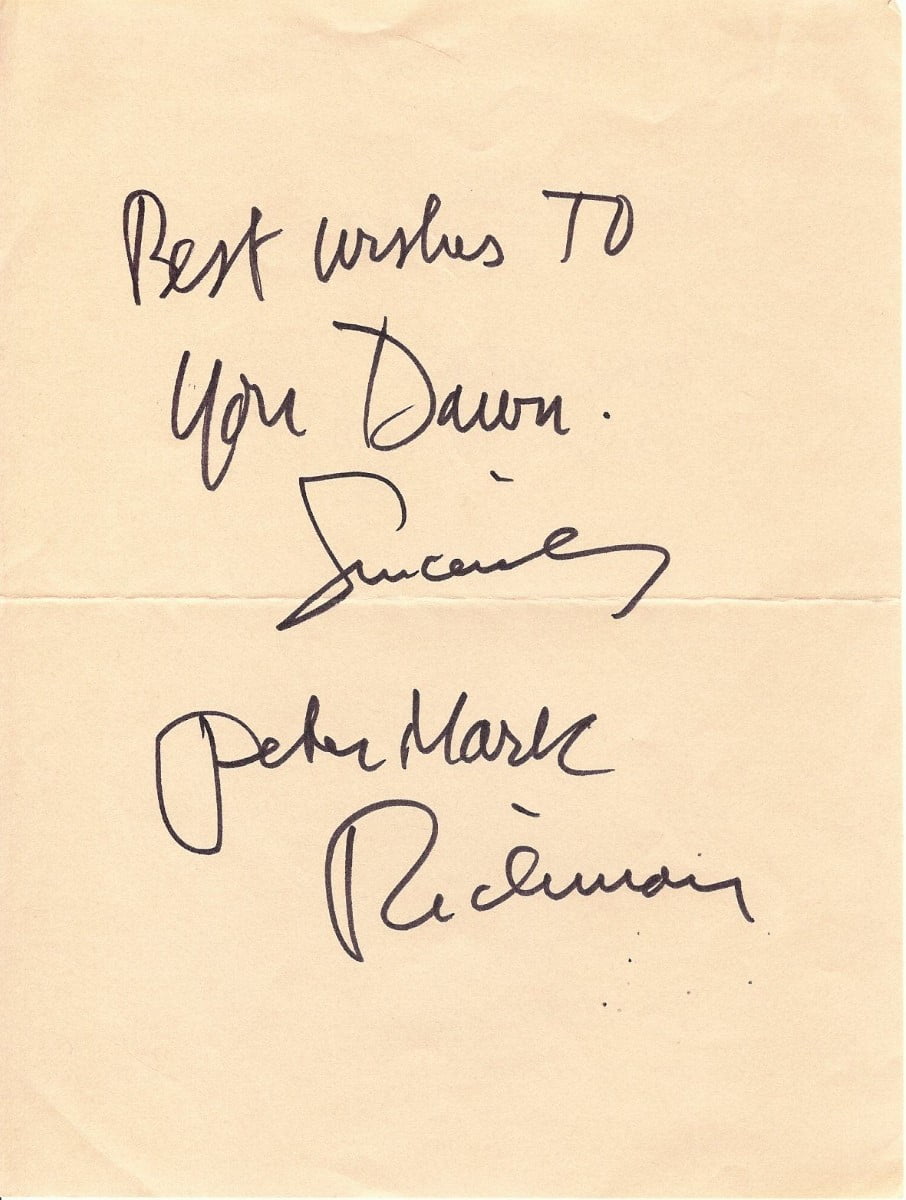 Best wishes To
You Dawn.
Sincerely
Peter Mark
Richman